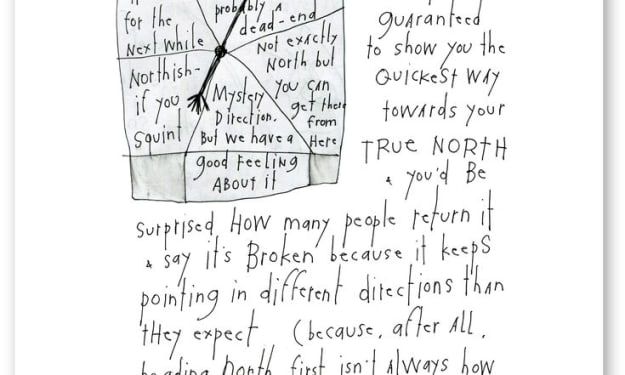 for the
Next while
probably a
dead-end
Not exactly
North but
you can
get there
from
Here
Northish-
if you
Squint
Mystery
Direction.
But we have a
good feeling
About it
guaranteed
to show you the
Quickest way
towards your
TRUE NORTH
& you'd Be
surprised How many people return it
& say it's Broken because it keeps
pointing in different directions than
tHey expect (because, after All,
heading North first isn't Always how